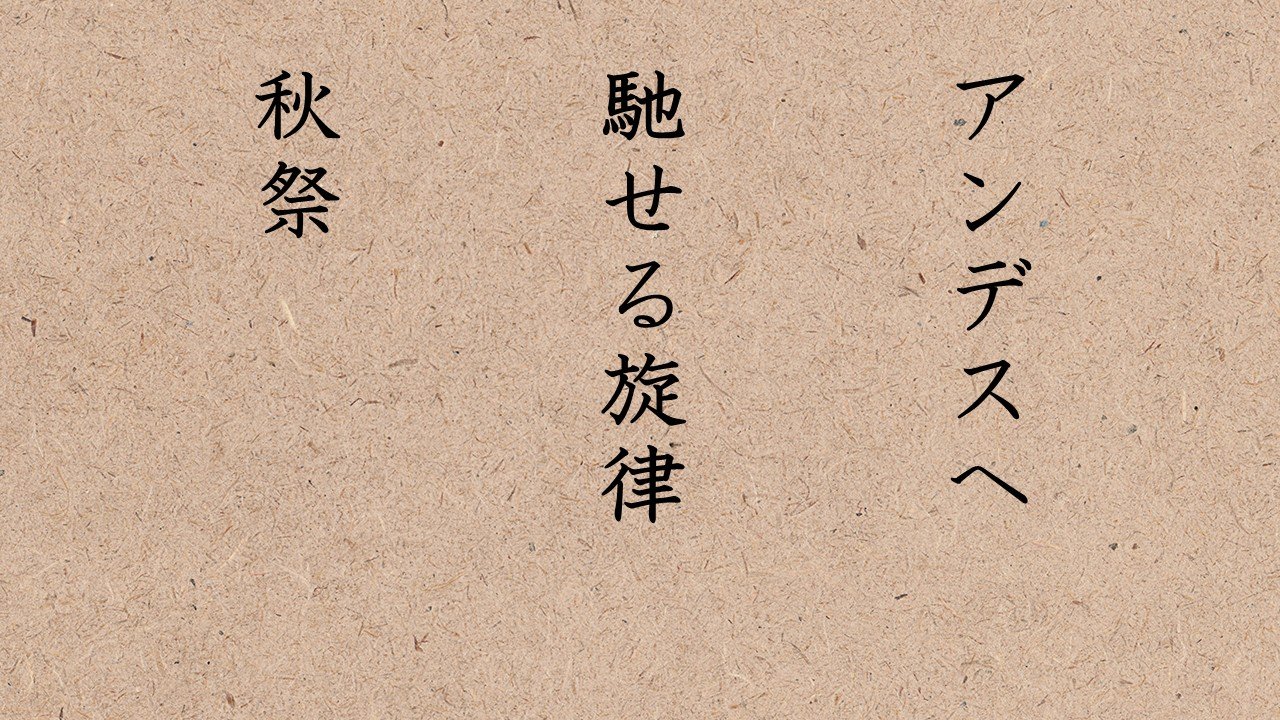 アンデスへ
馳せる旋律
秋祭